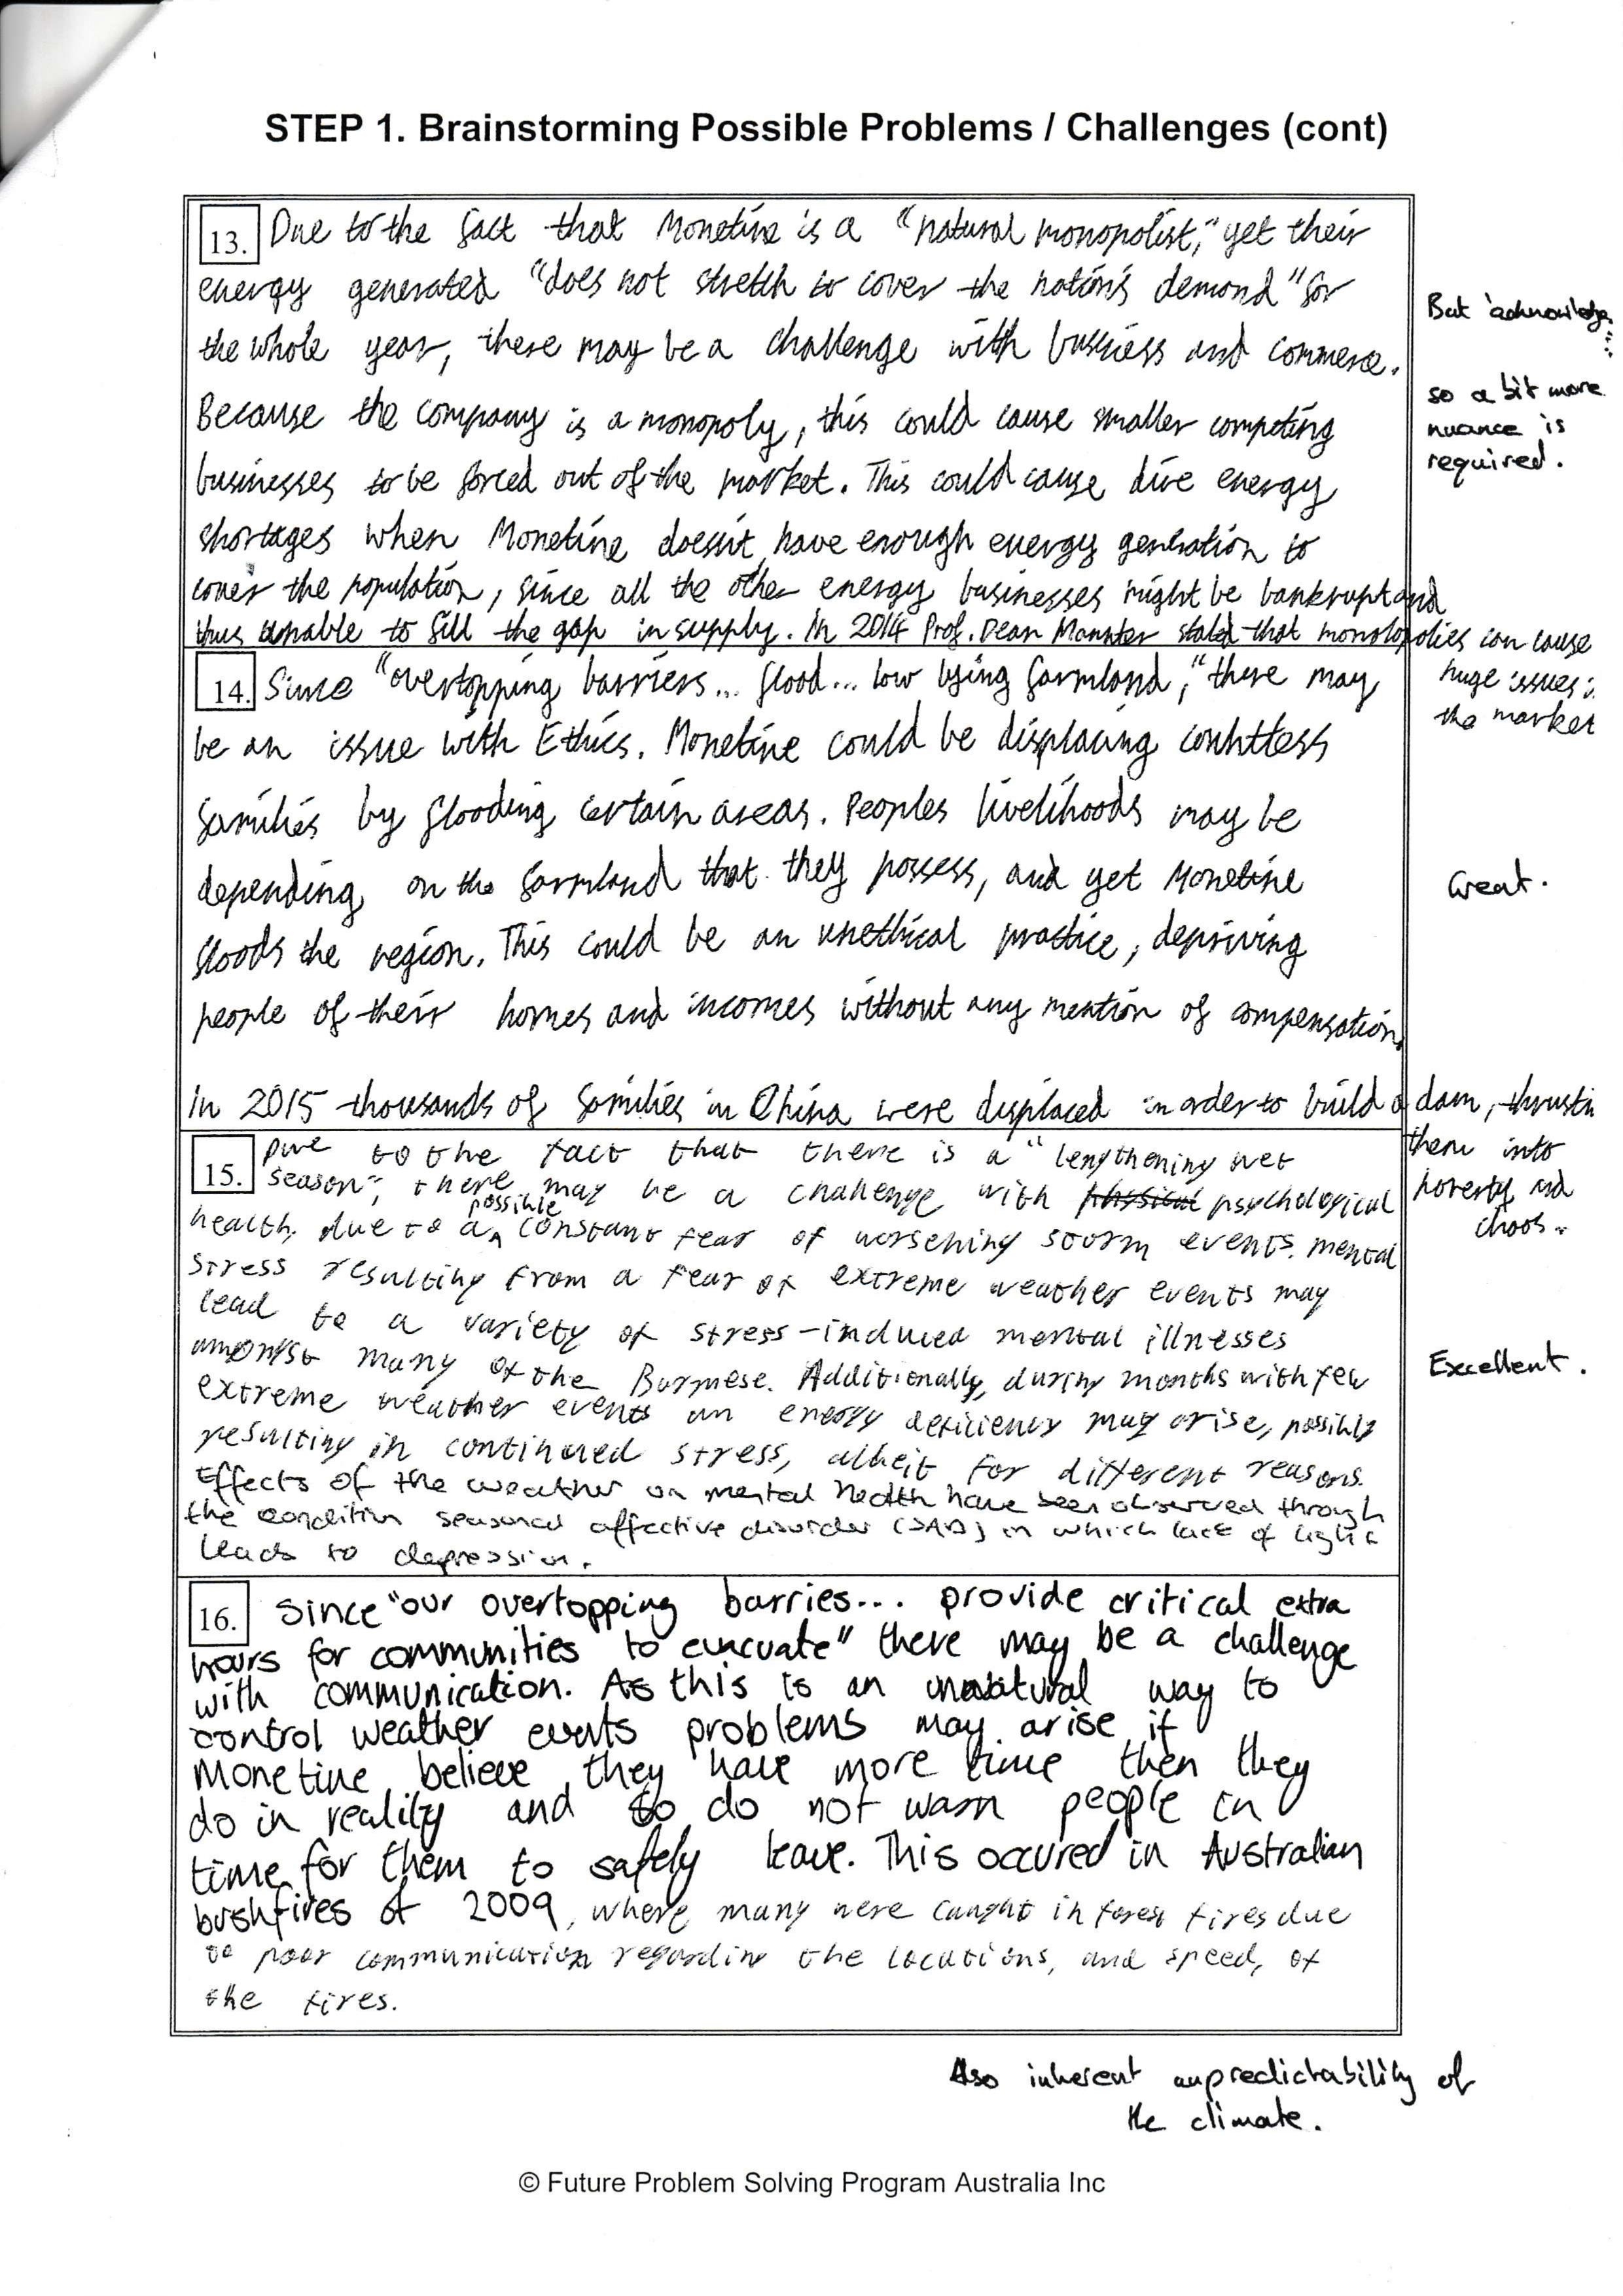 STEP 1. Brainstorming Possible Problems / Challenges (cont)
13. Due to the fact that Monetine is a "natural monopolist," yet their
energy generated "does not stretch to cover the nation's demand" for
the whole year, there may be a challenge with business and commerce.
Because the company is a monopoly, this could cause smaller competing
businesses to be forced out of the market. This could cause dire energy
shortages when Monetine doesn't have enough energy generation to
cover the population, since all the other energy businesses might be bankrupt and
thus unable to fill the gap in supply. In 2014 Prof. Dean stated that monolopolies can cause
huge issues in
the market
But 'acknowledge...
so a bit more
nuance is
required.
14. Since "overtopping barriers... flood... low lying farmland," there may
be an issue with Ethics. Monetine could be displacing countless
families by flooding certain areas. Peoples livelihoods may be
depending on the farmland that they possess, and yet Monetine
floods the region. This could be an unethical practice, depriving
people of their homes and incomes without any mention of compensation.
In 2015 thousands of families in China were displaced in order to build a dam, thrustin
them into
poverty and
chaos.
Great.
15. Due to the fact that there is a "lengthening wet
season", there may be a challenge with physical psychological
health, due to a possible constant fear of worsening storm events. Mental
stress resulting from a fear of extreme weather events may
lead to a variety of stress-induced mental illnesses
amongst many of the Burmese. Additionally, during months with few
extreme weather events an energy deficiency may arise, possibly
resulting in continued stress, albeit for different reasons.
Effects of the weather on mental health have been observed through
the condition seasonal affective disorder (SAD) in which lack of light
leads to depression.
Excellent.
16. Since "our overtopping barries... provide critical extra
hours for communities to evacuate" there may be a challenge
with communication. As this is an unnatural way to
control weather events problems may arise if
Monetine believe they have more time then they
do in reality and so do not warn people in
time for them to safely leave. This occured in Australian
bushfires of 2009, where many were caught in forest fires due
to poor communication regarding the locations, and speed, of
the fires.
Also inherent unpredictability of
the climate.
© Future Problem Solving Program Australia Inc